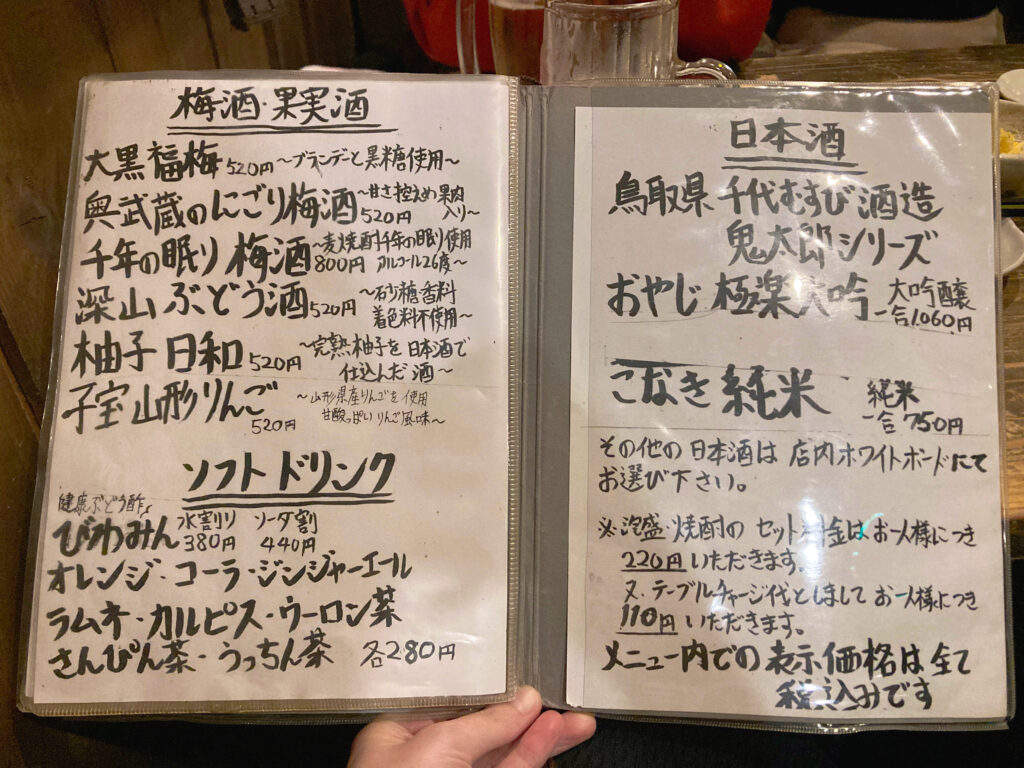 梅酒・果実酒
大黒福梅 520円 〜ブランデーと黒糖使用〜
奥武蔵のにごり梅酒 520円 〜甘さ控えめ果肉入り〜
千年の眠り 梅酒 800円 〜麦焼酎千年の眠り使用 アルコール26度〜
深山ぶどう酒 520円 〜石少糖香料 着色料不使用〜
柚子日和 520円 〜完熟柚子を日本酒で仕込んだ酒〜
子宝 山形りんご 520円 〜山形県産りんごを使用 甘酸っぱいりんご風味〜
ソフトドリンク
健康ぶどう酢
びわみん 水割り 380円 ソーダ割 440円
オレンジ・コーラ・ジンジャーエール
ラムネ・カルピス・ウーロン茶
さんぴん茶・うっちん茶 各280円
日本酒
鳥取県 千代むすび酒造
鬼太郎シリーズ
おやじ 極楽大吟 大吟醸 一合1,060円
こなき純米 純米 一合750円
その他の日本酒は 店内ホワイトボードにて
お選び下さい。
※泡盛・焼酎の セット料金はお一人様につき
220円いただきます。
又、テーブルチャージ代としまして お一人様につき
110円いただきます。
メニュー内での表示価格は全て
税込みです